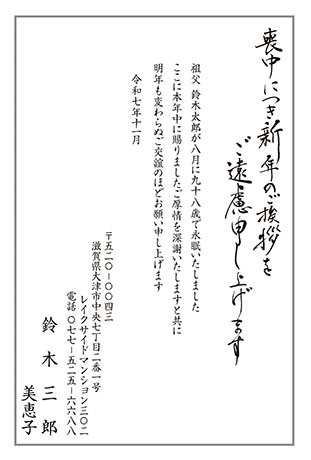 喪中につき新年のご挨拶を
ご遠慮申し上げます
祖父 鈴木太郎が八月に九十八歳で永眠いたしました
ここに本年中に賜りましたご厚情を深謝いたしますと共に
明年も変わらぬご交誼のほどお願い申し上げます
令和七年十一月
〒五二〇-〇〇四三
滋賀県大津市中央七丁目二番一号
レイクサイドマンション三〇二
電話 〇七七-五二五-六六八八
鈴木三郎
美恵子